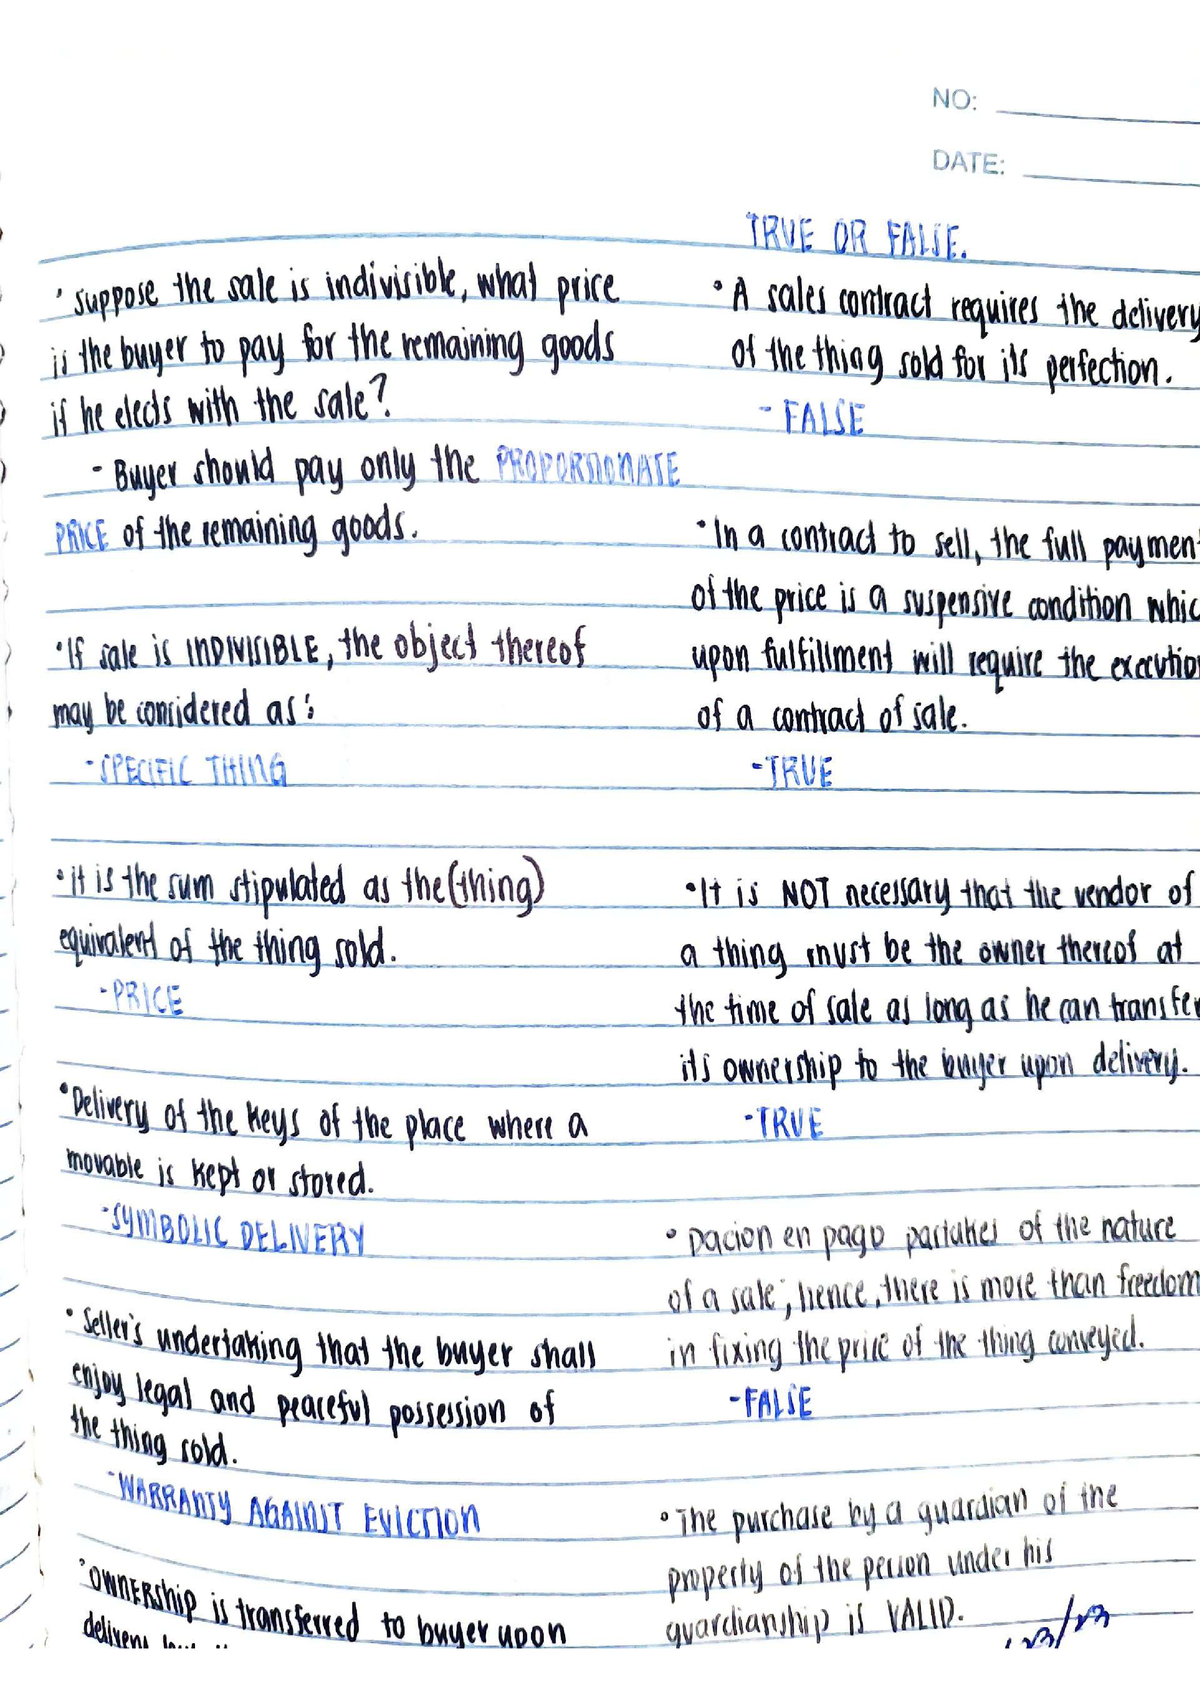 NO:
DATE:
• Suppose the sale is indivisible, what price
is the buyer to pay for the remaining goods
if he elects with the sale?
- Buyer should pay only the PROPORTIONATE
PRICE of the remaining goods.
• If sale is INDIVISIBLE, the object thereof
may be considered as:
- SPECIFIC THING
• it is the sum stipulated as the (thing)
equivalent of the thing sold.
- PRICE
• Delivery of the keys of the place where a
movable is kept or stored.
- SYMBOLIC DELIVERY
• Seller's undertaking that the buyer shall
enjoy legal and peaceful possession of
the thing sold.
- WARRANTY AGAINST EVICTION
• OWNERship is transferred to buyer upon
TRUE OR FALSE.
• A sales contract requires the delivery
of the thing sold for its perfection.
- FALSE
• In a contract to sell, the full paymen
of the price is a suspensive condition whic
upon fulfillment will require the executio
of a contract of sale.
- TRUE
• It is NOT necessary that the vendor of
a thing must be the owner thereof at
the time of sale as long as he can transfer
its ownership to the buyer upon delivery.
- TRUE
• Dacion en pago partakes of the nature
of a sale; hence, there is more than freedom
in fixing the price of the thing conveyed.
- FALSE
• The purchase by a guardian of the
property of the person under his
guardianship is VALID.